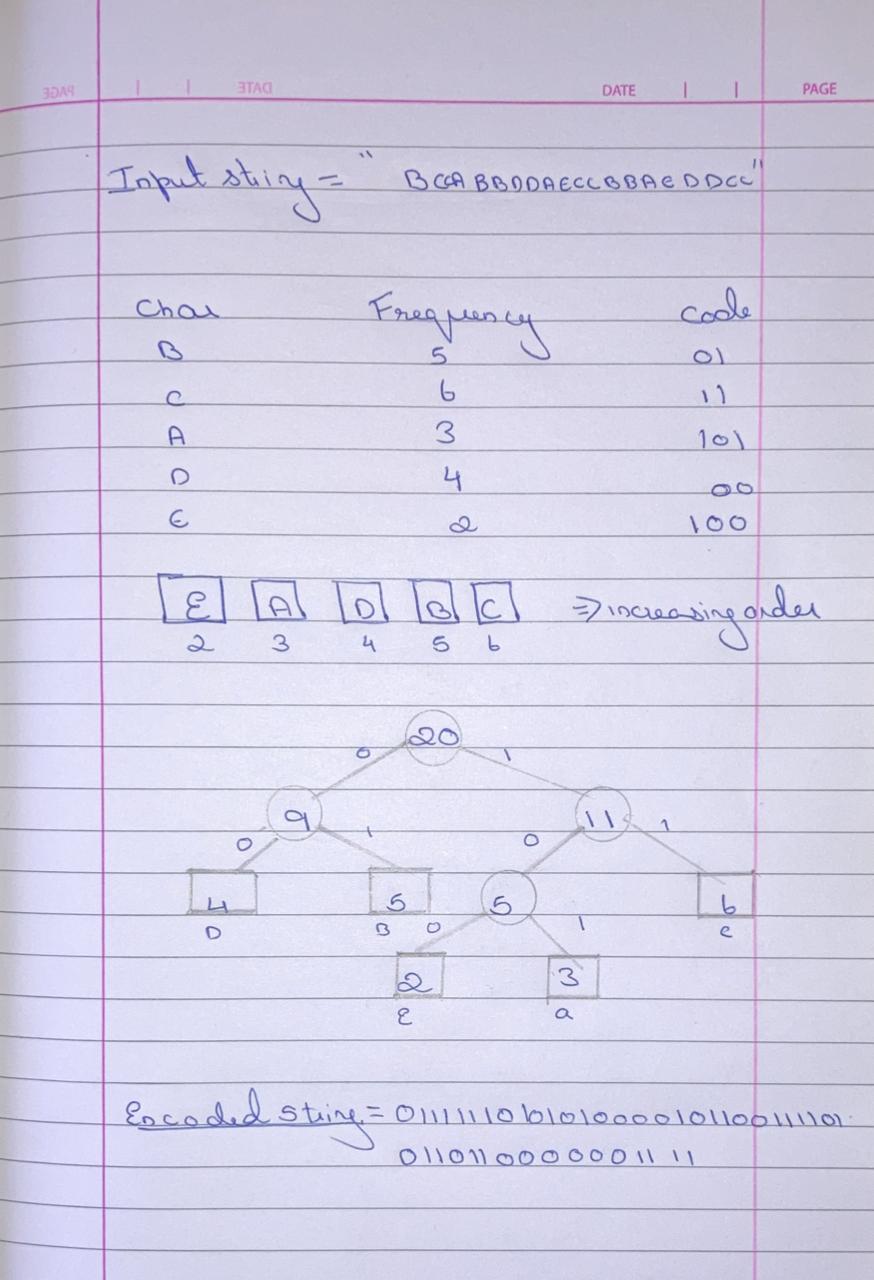 DATE PAGE
Input string = " BCCABBDDAECCBBAEDDCC"
Char Frequency Code
B 5 01
C 6 11
A 3 101
D 4 00
E 2 100
E A D B C ⇒ increasing order
2 3 4 5 6
20
0 1
9 11
0 1 0 1
4 5 5 6
D B 0 1 C
2 3
E a
Encoded string = 01111110101010000101100111101
01101100000001111